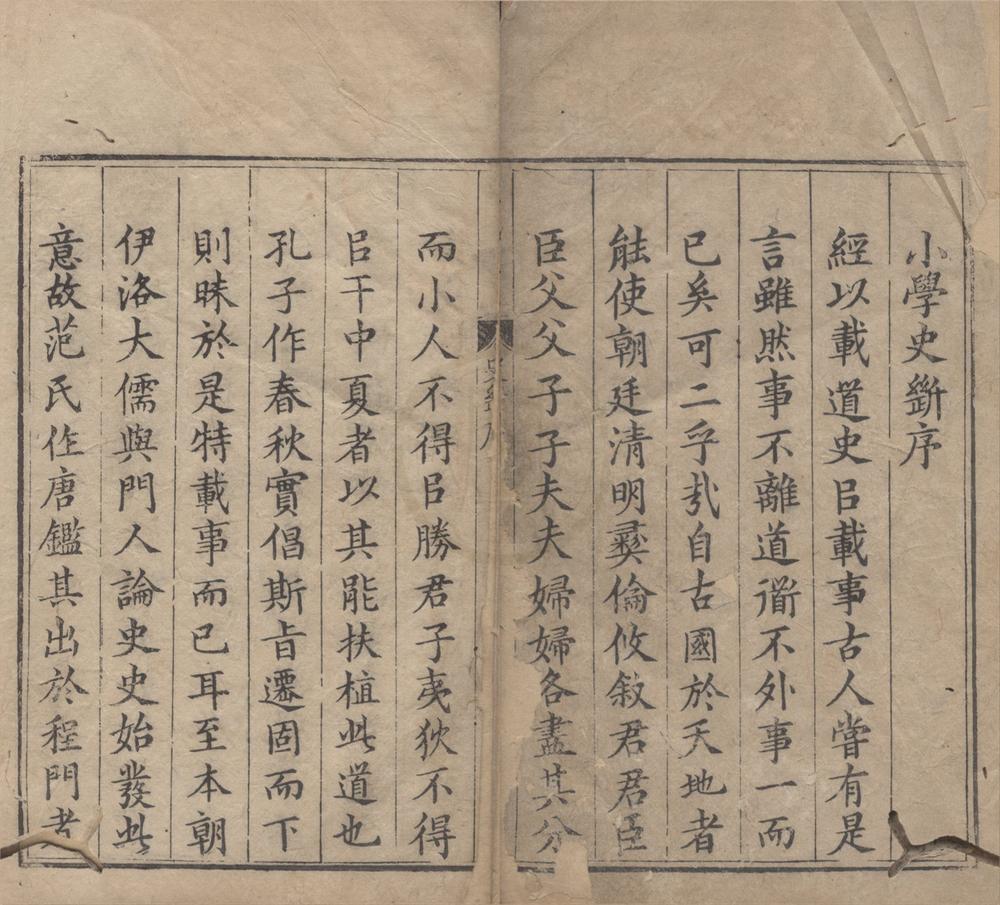 小學史斷序
經以載道史㠯載事古人嘗有是
言雖然事不離道衜不外事一而
已矣可二乎㢤自古國於天地者
能使朝廷清明彛倫攸敘君君臣
臣父父子子夫夫婦婦各盡其分
而小人不得㠯勝君子夷狄不得
㠯干中夏者以其能扶植此道也
孔子作春秋實倡斯旨遷固而下
則昧於是特載事而已耳至本朝
伊洛大儒與門人論史史始發此
意故范氏作唐鑑其出於程門者